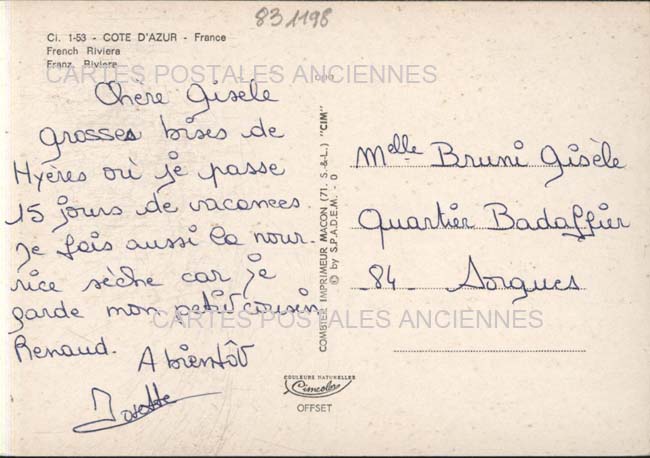 831198
Ci. 1-53 - COTE D'AZUR - France
French Riviera
Franz. Riviera
CARTES POSTALES ANCIENNES
Chère Gisèle
grosses bises de
Hyères où je passe
15 jours de vacances.
Je fais aussi la nour-
rice sèche car je
garde mon petit cousin
Renaud.
A bientôt
Josette
COMBIER IMPRIMEUR MACON (71. S.-&-L.) "CIM"
© by S.P.A.D.E.M. - 0
Melle Bruni Gisèle
Quartier Badaffier
-84- Sorgues
CARTES POSTALES ANCIENNES
COULEURS NATURELLES
Cimcolor
OFFSET